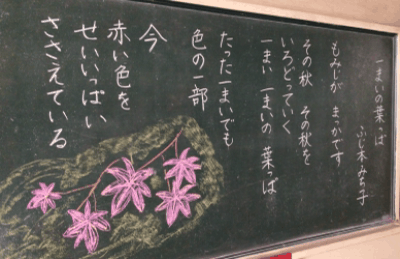 一まいの葉っぱ
ふじ本みち子
もみじが まっかです
その秋 その秋を
いろどっていく
一まい一まいの 葉っぱ
たった一まいでも
色の一部
今
赤い色を
せいいっぱい
ささえている